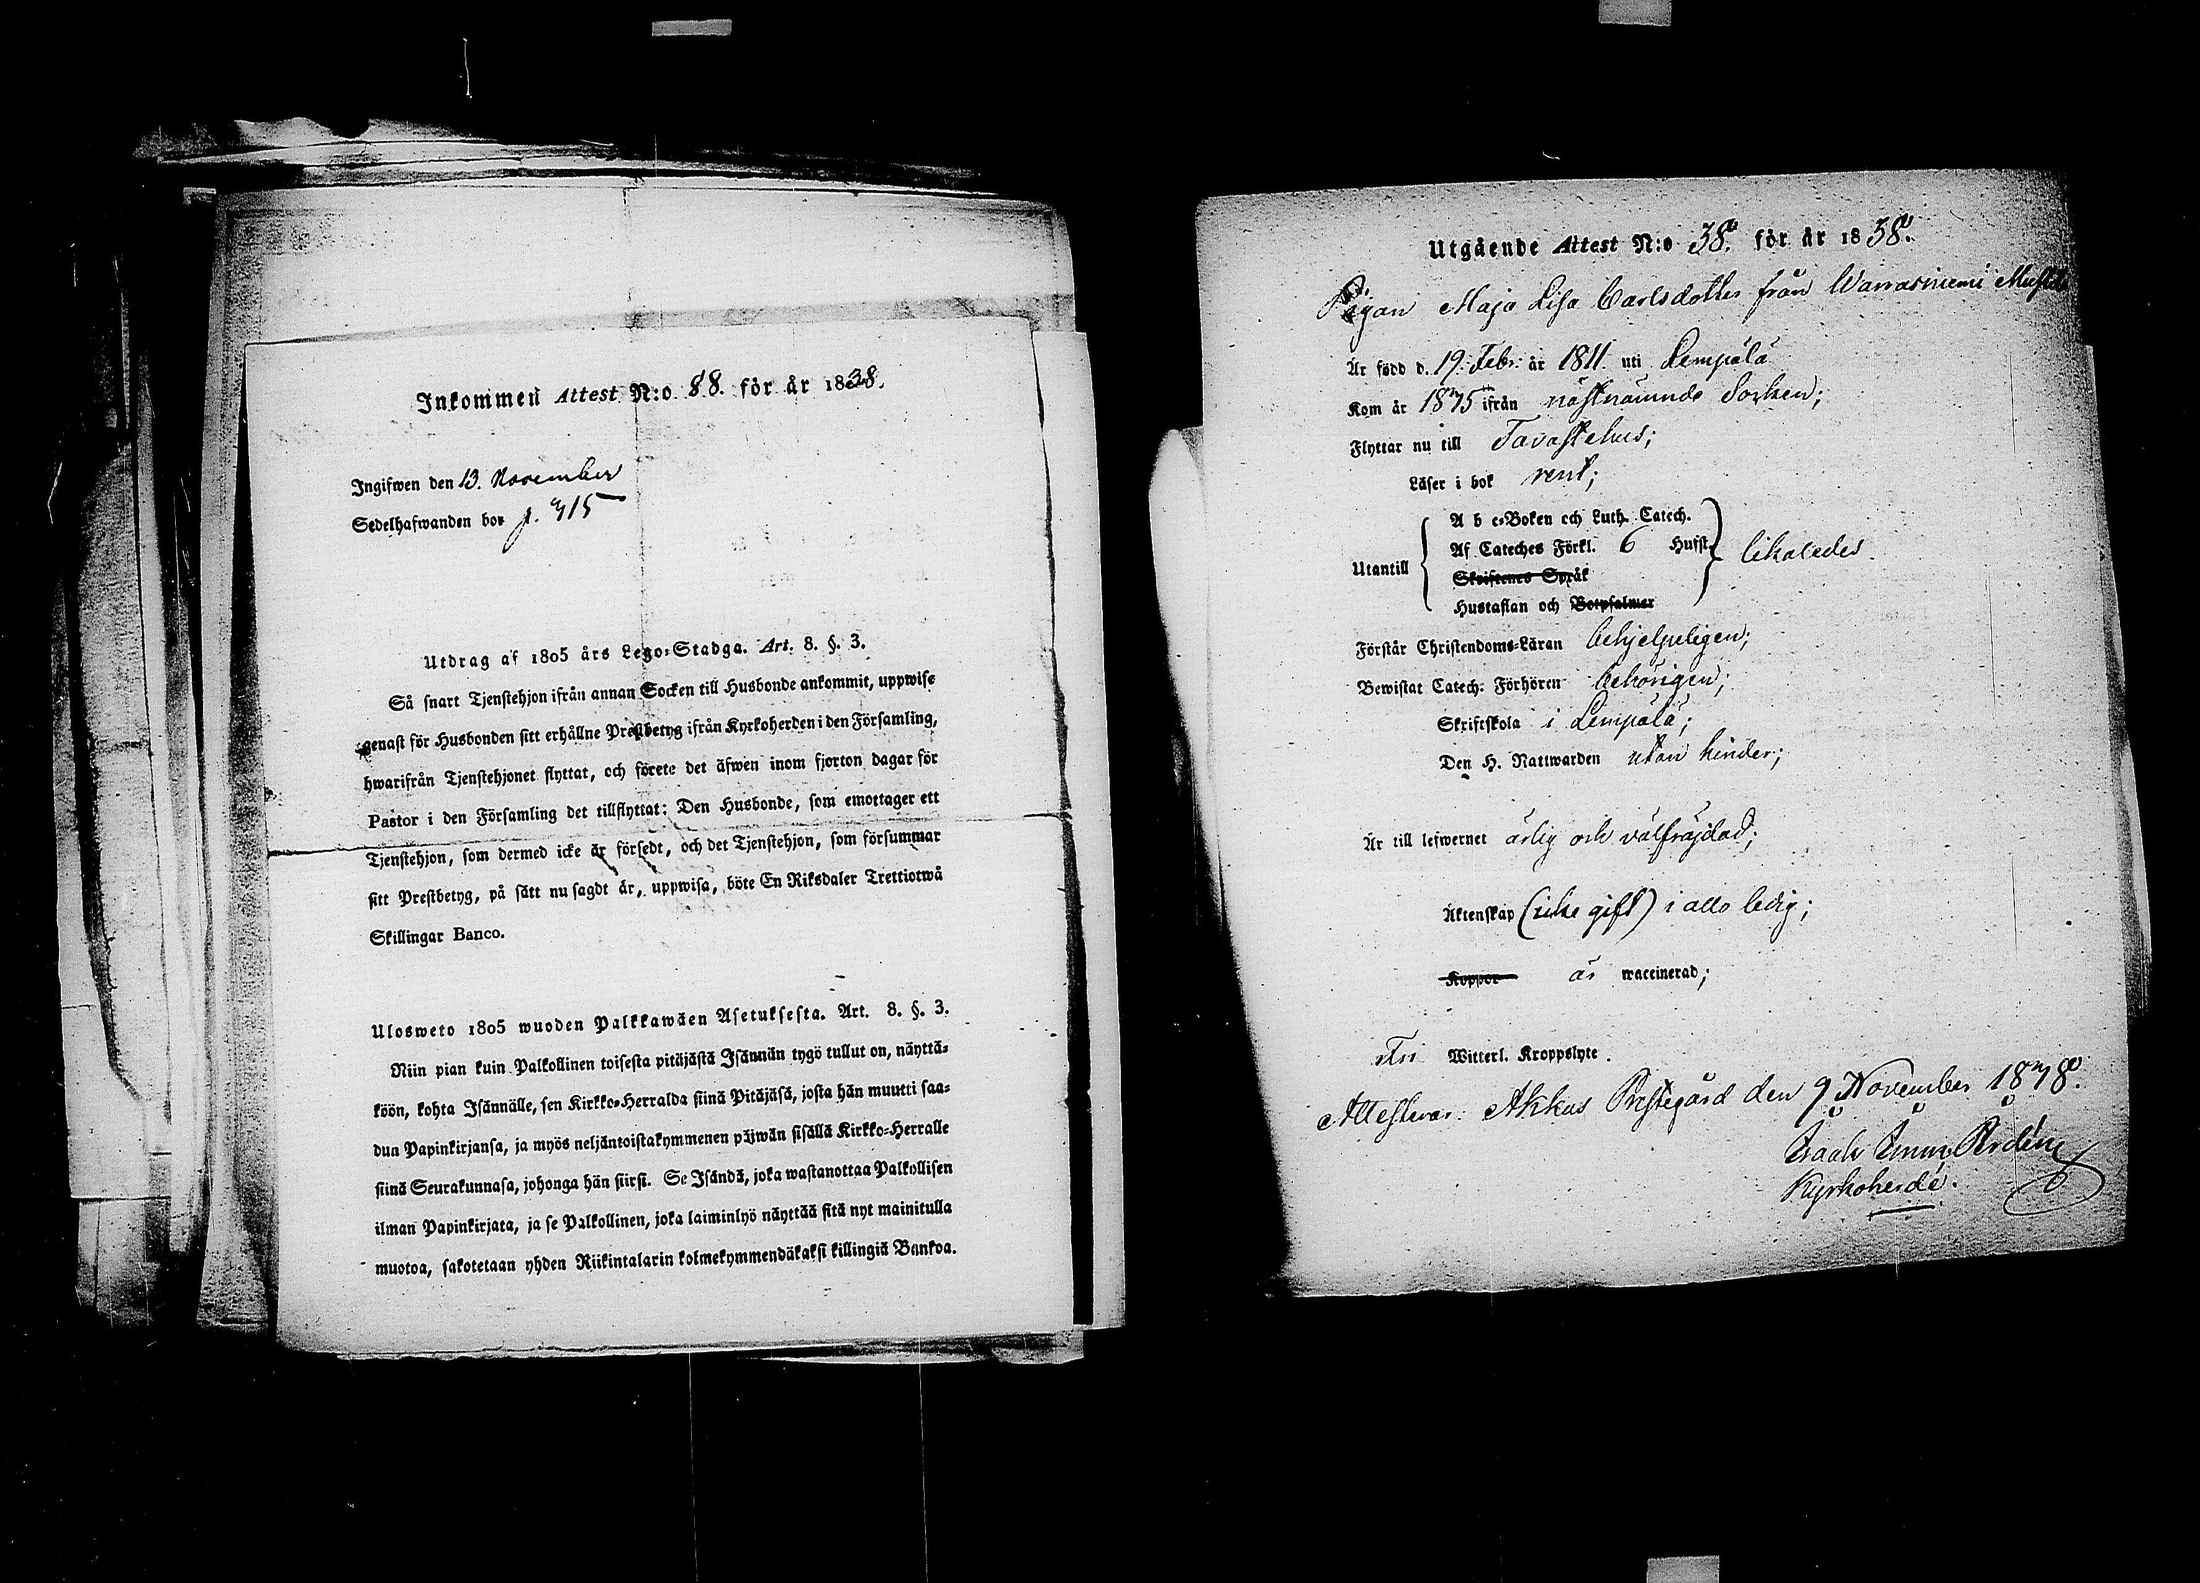 Inkommen Attest N:o 88. för år 1838.
Ingifwen den 13. November
Sedelhafwanden bor p. 315
Utdrag af 1805 års Lego-Stadga. Art. 8. §. 3.
Så snart Tjenstehjon ifrån annan Socken till Husbonde ankommit, uppwise
genast för Husbonden sitt erhållne Prestbetyg ifrån Kyrkoherden i den Församling,
hwarifrån Tjenstehjonet flyttat, och förete det äfwen inom fjorton dagar för
Pastor i den Församling det tillflyttat: Den Husbonde, som emottager ett
Tjenstehjon, som dermed icke är försedt, och det Tjenstehjon, som försummar
sitt Prestbetyg, på sätt nu sagdt är, uppwisa, böte En Riksdaler Trettiotwå
Skillingar Banco.
Ulosweto 1805 wuoden Palkkawäen Asetuksesta. Art. 8. §. 3.
Niin pian kuin Palkollinen toisesta pitäjästä Isännän tygö tullut on, näyttä-
köön, kohta Isännälle, sen Kirkko-Herralda siinä Pitäjäsä, josta hän muutti saa-
dun Papinkirjansa, ja myös neljäntoistakymmenen päjwän sisällä Kirkko-Herralle
siinä Seurakunnasa, johonga hän siirsi. Se Isändä, joka wastanottaa Palkollisen
ilman Papinkirjata, ja se Palkollinen, joka laiminlyö näyttää sitä nyt mainitulla
muotoa, sakotetaan yhden Riikintalarin kolmekymmendäkaksi killingiä Bankoa.
Utgående Attest N:o 38. för år 1838.
Pigan Maja Lisa Carlsdotter från Warrasniemi
Är född d. 19. Febr. år 1811. uti Lempälä
Kom år 1835 ifrån nästnämnde Socken;
Flyttar nu till Tavastehus;
Läser i bok rent;
A b c-Boken och Luth. Catech.
Af Cateches Förkl. 6 Hufst.
Utantill likaledes.
Skriftenes Språk
Hustaflan och Botpsalmer
Förstår Christendoms-Läran behjelpeligen;
Bewistat Catech: Förhören behörigen;
Skriftskola i Lempälä;
Den H. Nattwarden utan hinder;
Är till lefwernet ärlig och välfräjdad;
Äktenskap (icke gift) i allo ledig;
Koppor är waccinerad;
Fri Witterl. Kroppslyte.
Attesterar. Akkas Prestegård den 9 November 1838.
Isaac
Kyrkoherde.